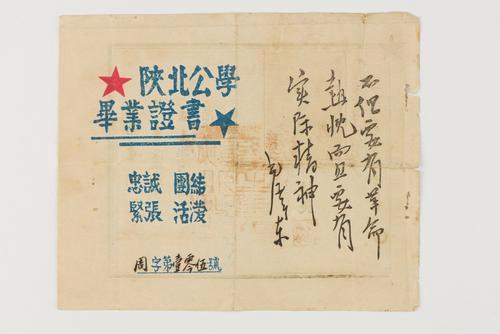 陝北公學
畢業證書
忠誠 團結
緊張 活潑
周字第壹零伍號
不但要有革命
熱忱而且要有
实际精神
毛澤东